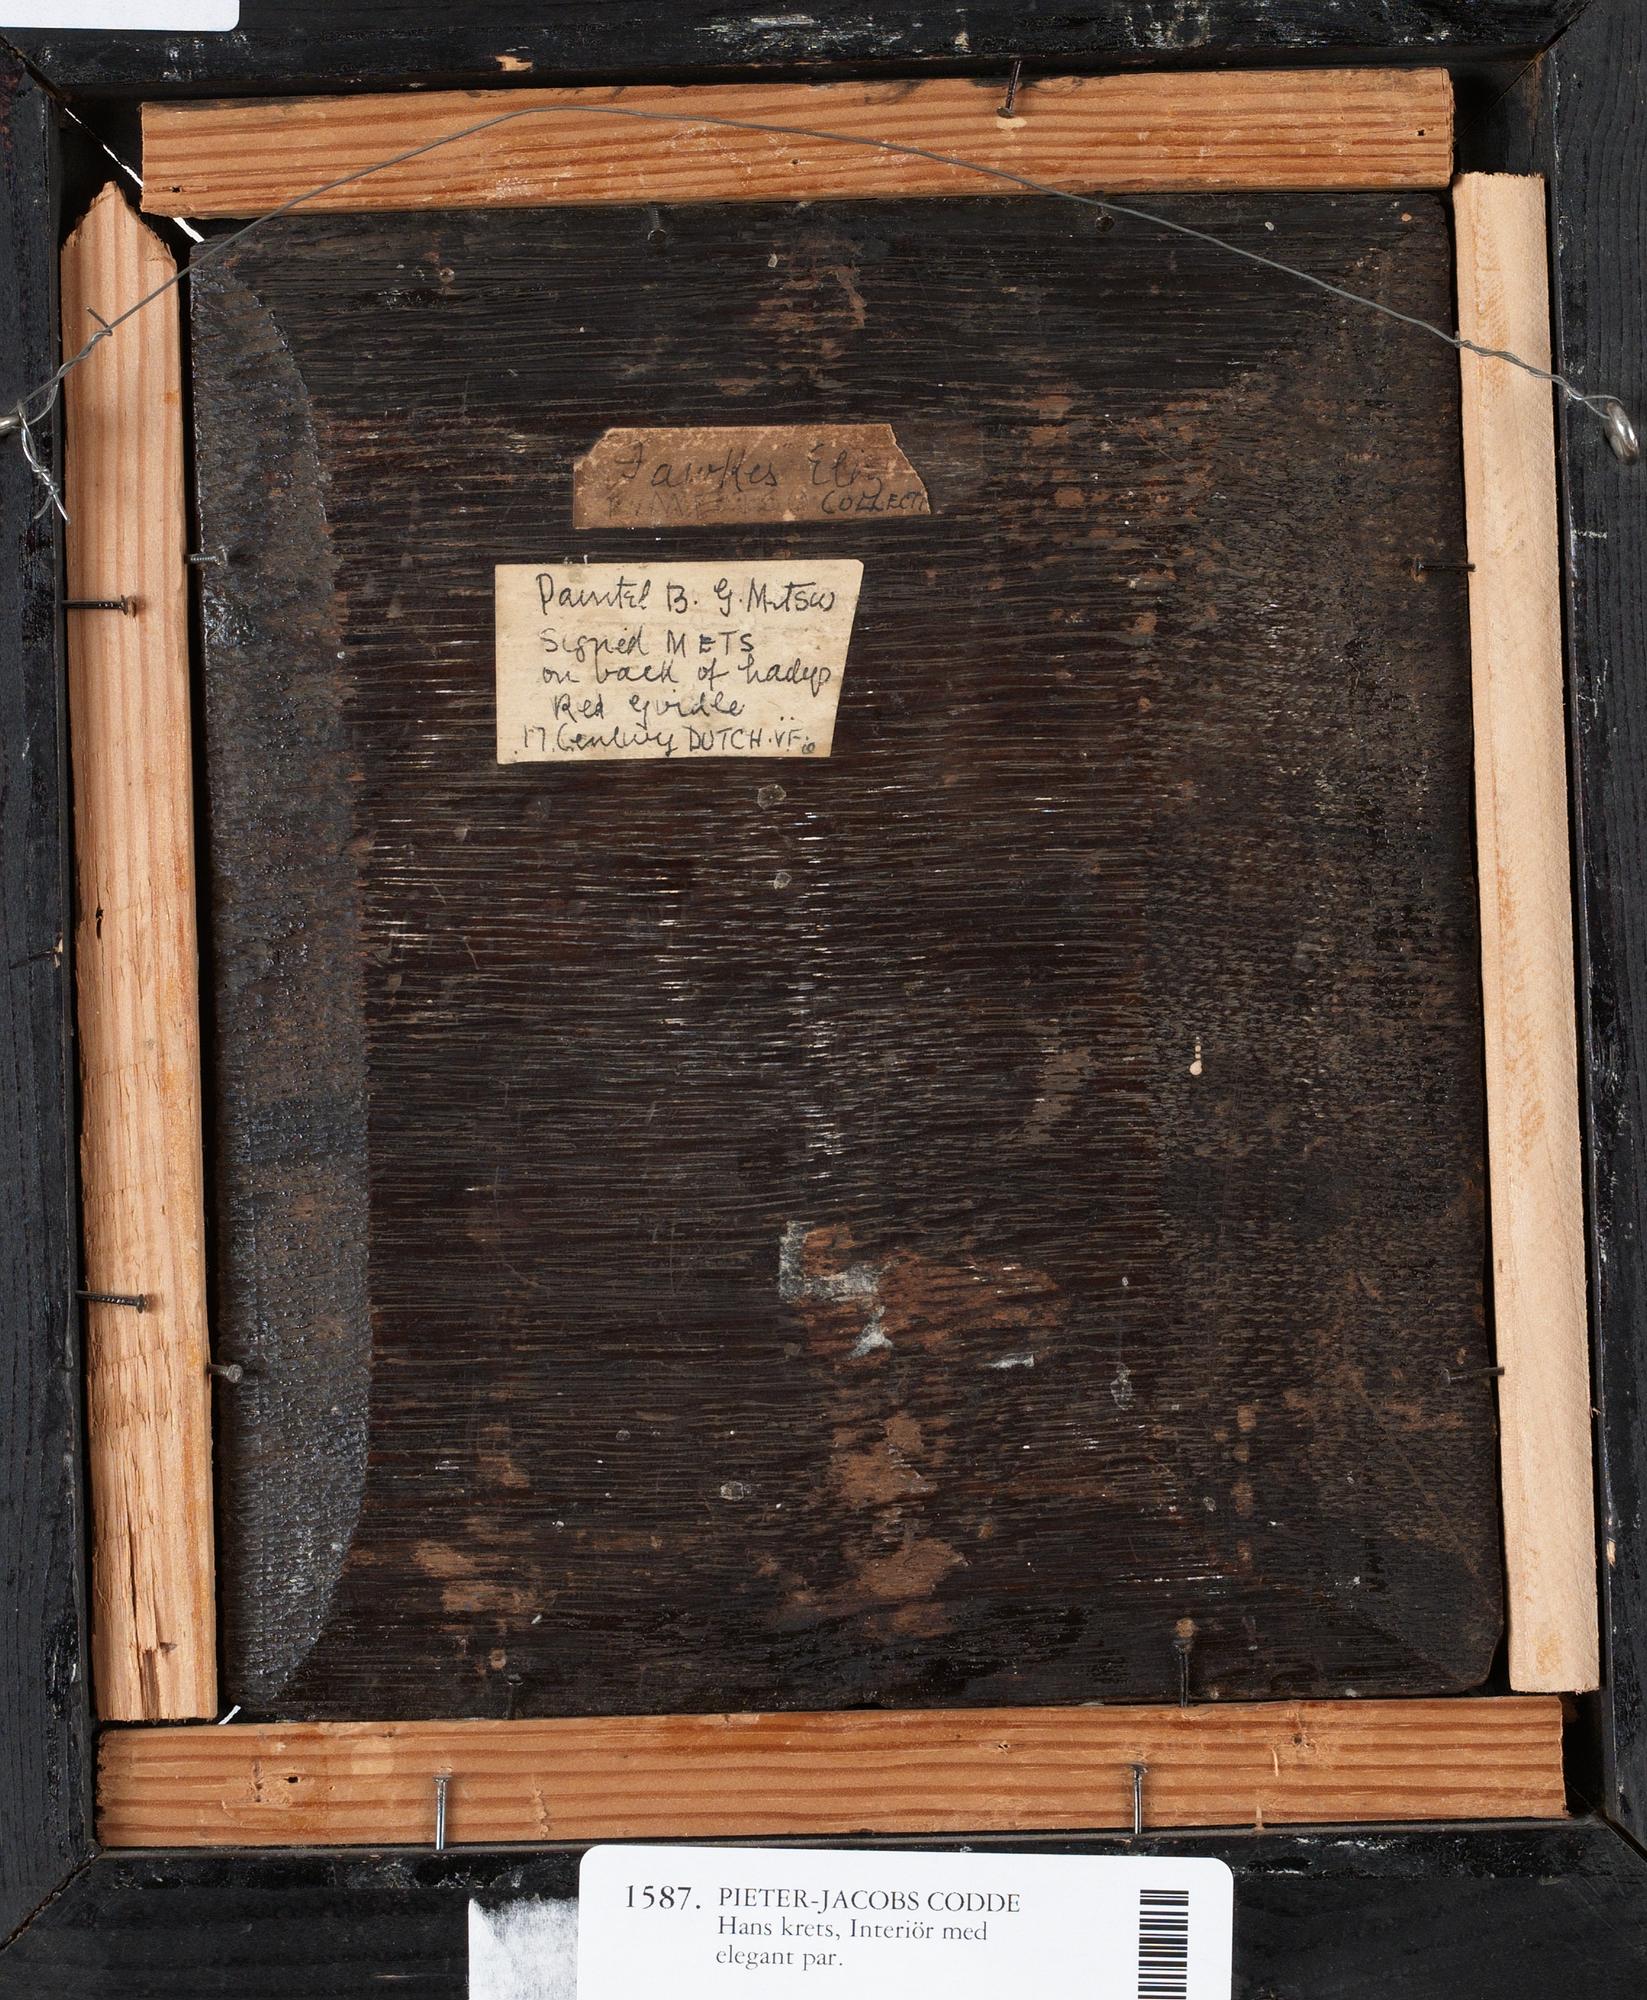 Fawkes Eliz
COLLECT
Painted B. G. Metsu
Signed METS
on back of Ladys
Red girdle
17 Century DUTCH.
1587. PIETER-JACOBS CODDE
Hans krets, Interiör med
elegant par.